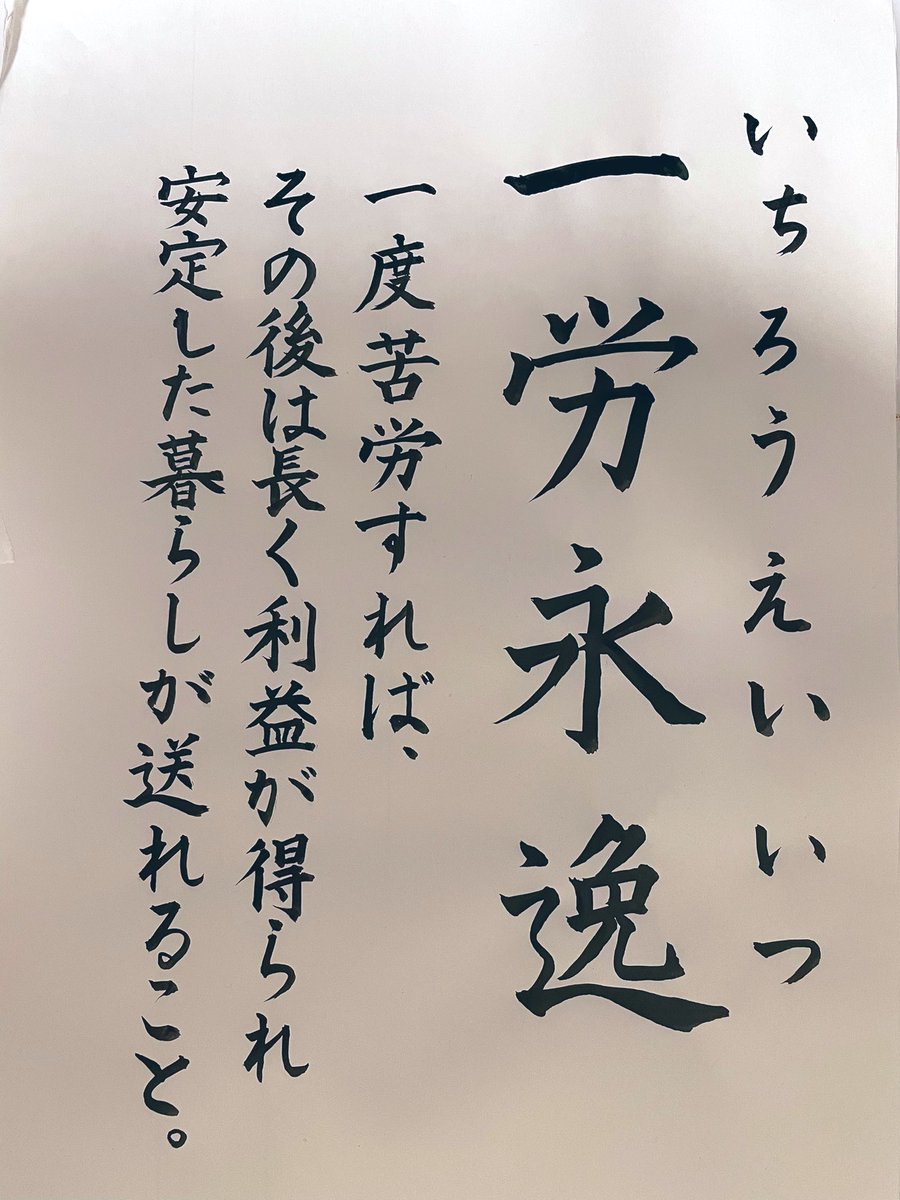 いちろうえいいつ
一労永逸
一度苦労すれば、
その後は長く利益が得られ
安定した暮らしが送れること。